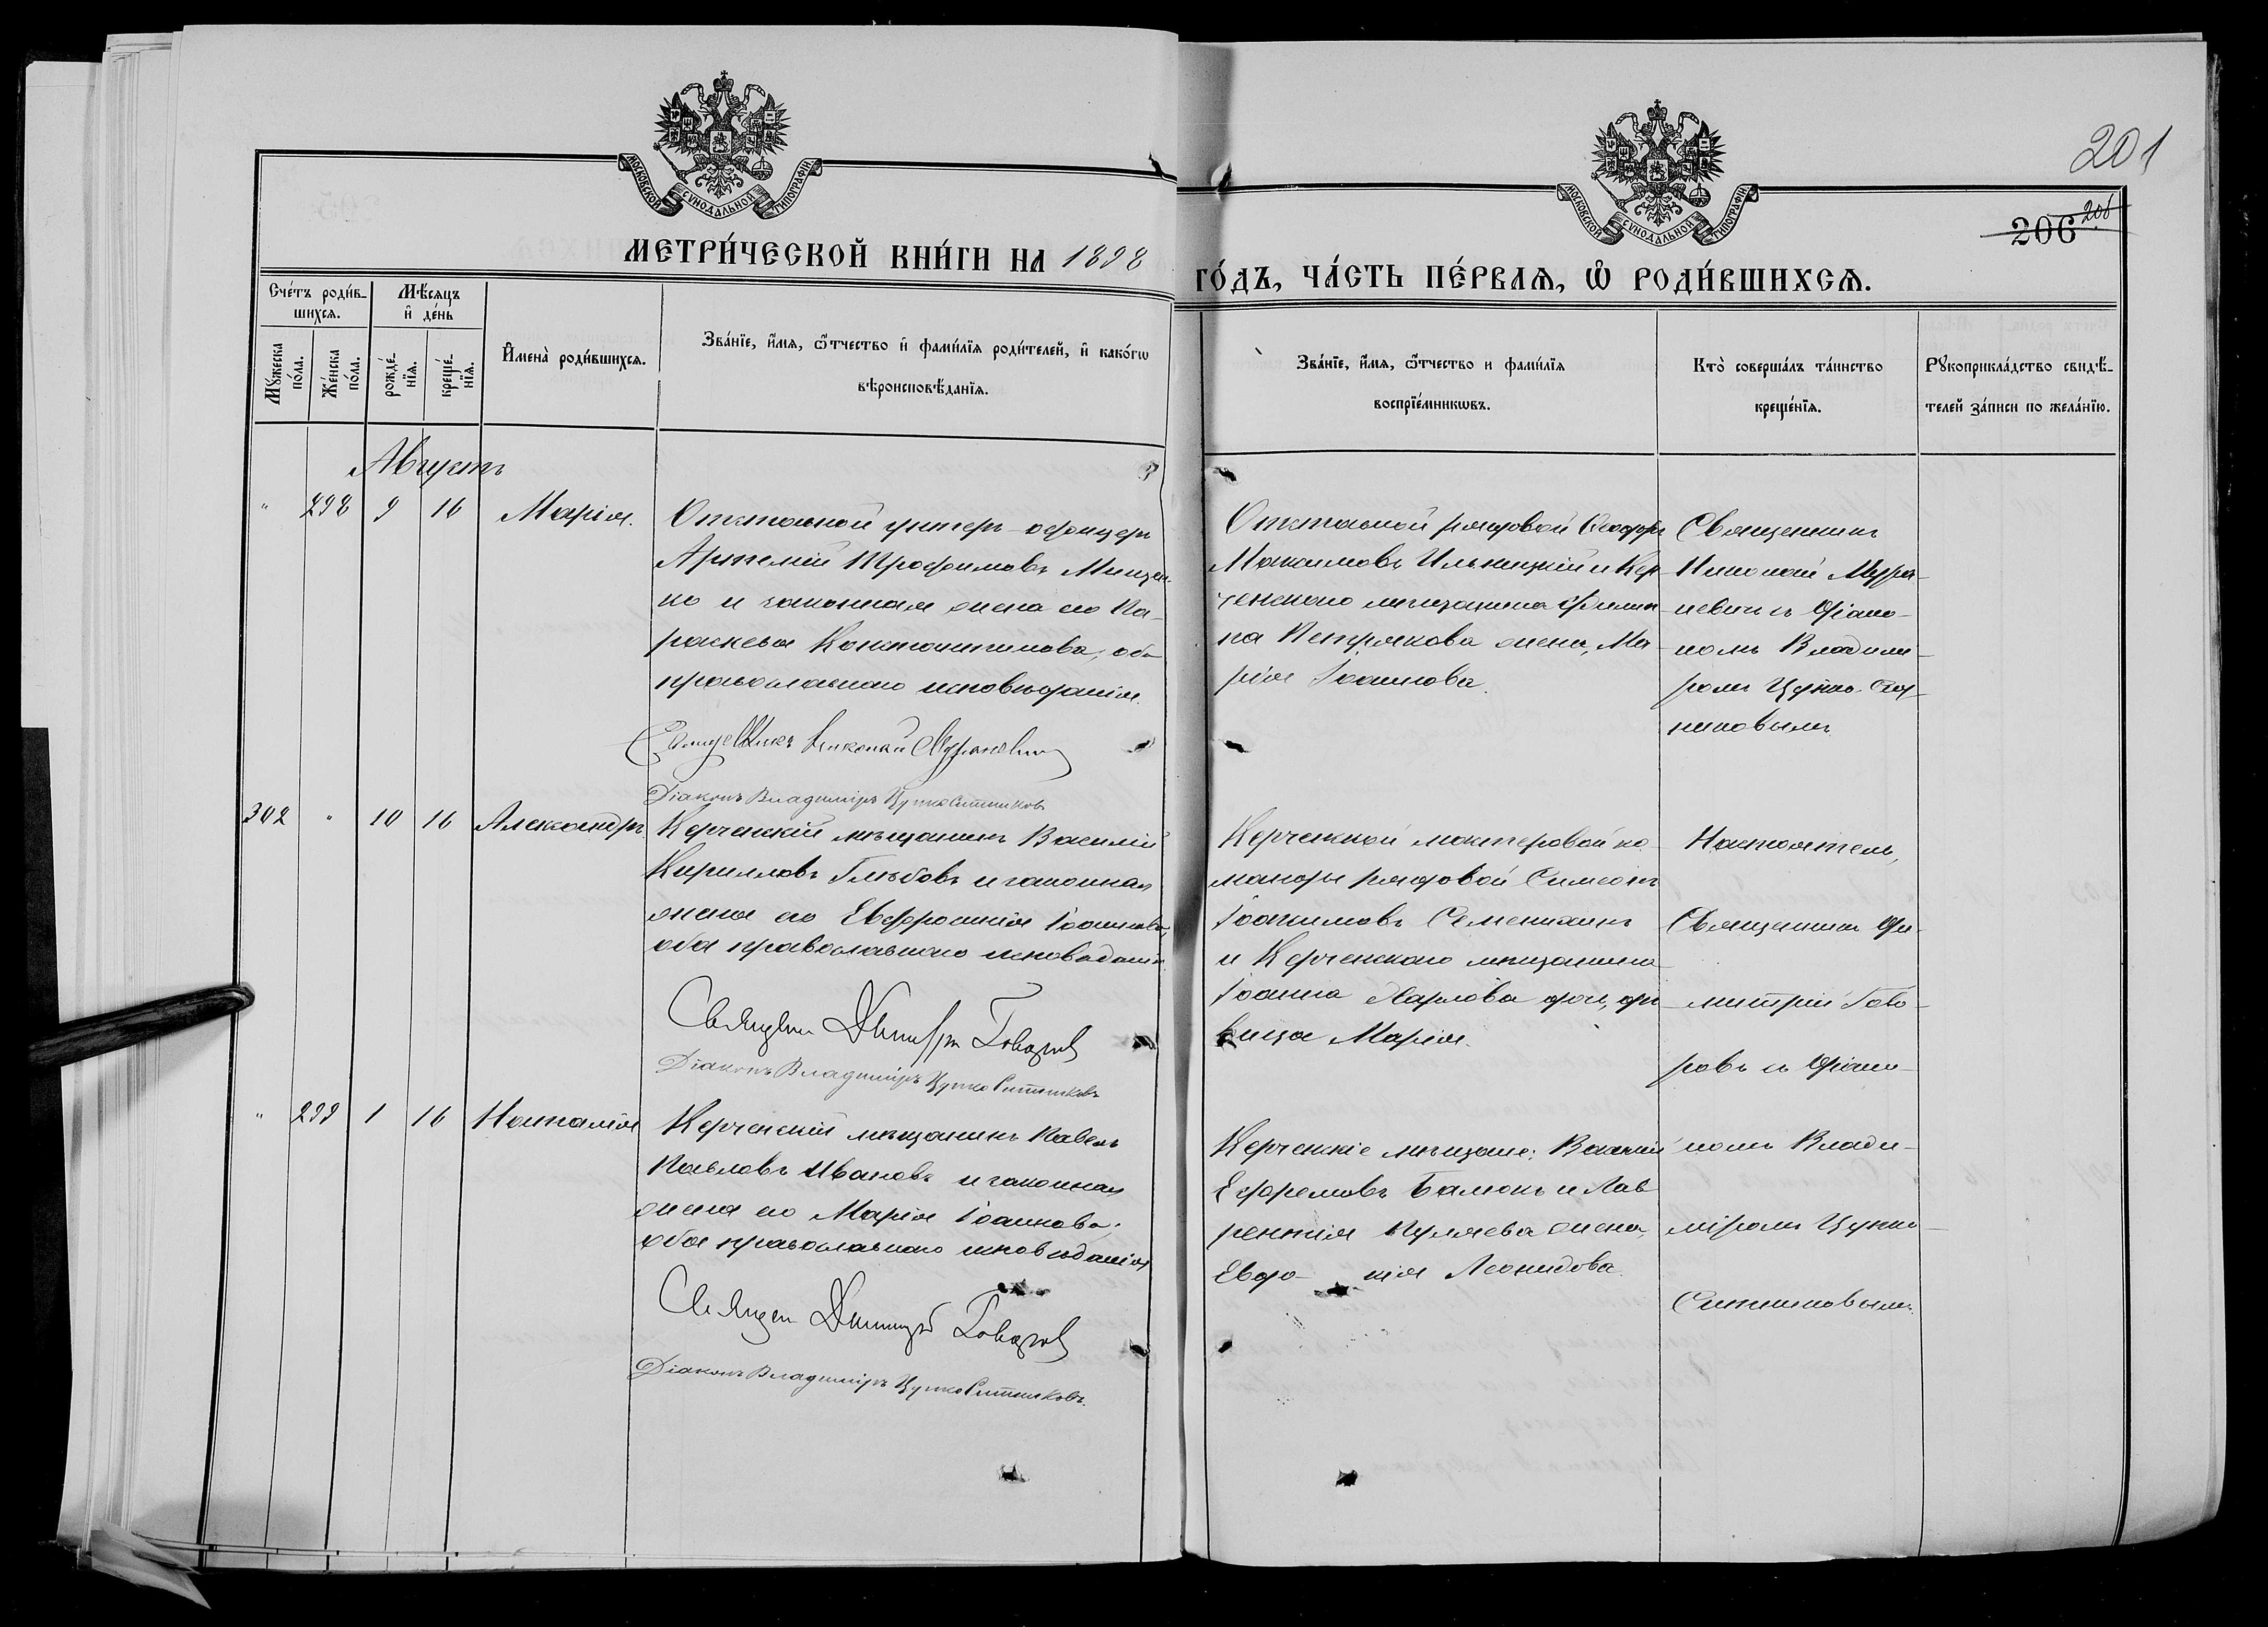 МОСКОВСКОЙ СѴНОДАЛЬНОЙ ТИПОГРАФІИ
МОСКОВСКОЙ СѴНОДАЛЬНОЙ ТИПОГРАФІИ
201
206
МЕТРИ́ЧЕСКОЙ КНИ́ГИ НА 1898
ГО́ДЪ, ЧА́СТЬ ПЕ́РВАѦ, Ѡ҆ РОДИ́ВШИХСѦ.
Сче́тъ роди́в-
шихсѧ.
Мѣ́сѧцъ
и҆ де́нь
Мꙋ́жеска
по́ла.
Же́нска
по́ла.
рожде́-
нїѧ.
креще́-
нїѧ.
И҆мена̀ роди́вшихсѧ.
Зва́нїе, и҆́мѧ, ѻ҆́тчество и҆ фами́лїѧ роди́телей, и҆ како́гѡ
вѣроисповѣ́данїѧ.
Зва́нїе, и҆́мѧ, ѻ҆́тчество и фами́лїѧ
воспрїе́мникѡвъ.
Кто̀ соверша́лъ та́инство
креще́нїѧ.
Рꙋкоприкла́дство свидѣ́-
телей за́писи по жела́нїю.
Августъ
" 298 9 16 Марія.
Отставной унтеръ-офицеръ
Артемій Трофимовъ Мищен-
ко и законная жена его Па-
раскева Константинова, оба
православнаго исповѣданія.
Священникъ Николай Мураневичъ
Діаконъ Владиміръ Цупко Ситниковъ
Отставной рядовой Ѳеодоръ
Максимовъ Ильницкій и Кер-
ченскаго мѣщанина Филип-
па Петрякова жена, Ма-
рія Іоаннова.
Священникъ
Николай Мура-
невичъ и Діако-
номъ Владими-
ромъ Цупко-Сит-
никовымъ
302 " 10 16 Александръ
Керченскій мѣщанинъ Василій
Кирилловъ Глѣбовъ и законная
жена его Евфросинія Іоаннова,
оба православнаго исповѣданія.
Священникъ Димитрій Говоровъ
Діаконъ Владиміръ Цупко Ситниковъ
Керченской мастеровой ко-
манды рядовой Симеонъ
Іоакимовъ Семенихинъ
и Керченскаго мѣщанина
Іоанна Харлова дочь, дѣ-
вица Марія.
Настоятель,
Священникъ Ди-
митрій Гово-
ровъ и Діако-
номъ Влади-
міромъ Цупко-
Ситниковымъ.
" 299 1 16 Наталія
Керченскій мѣщанинъ Павелъ
Павловъ Ивановъ и законная
жена его Марія Іоаннова;
оба православнаго исповѣданія
Священ Димитрій Говоровъ
Діаконъ Владиміръ Цупко Ситниковъ.
Керченскіе мѣщане: Василій
Ефремовъ Балюкъ и Лав-
рентія Пуляева жена,
Евдо- кія Леонидова.